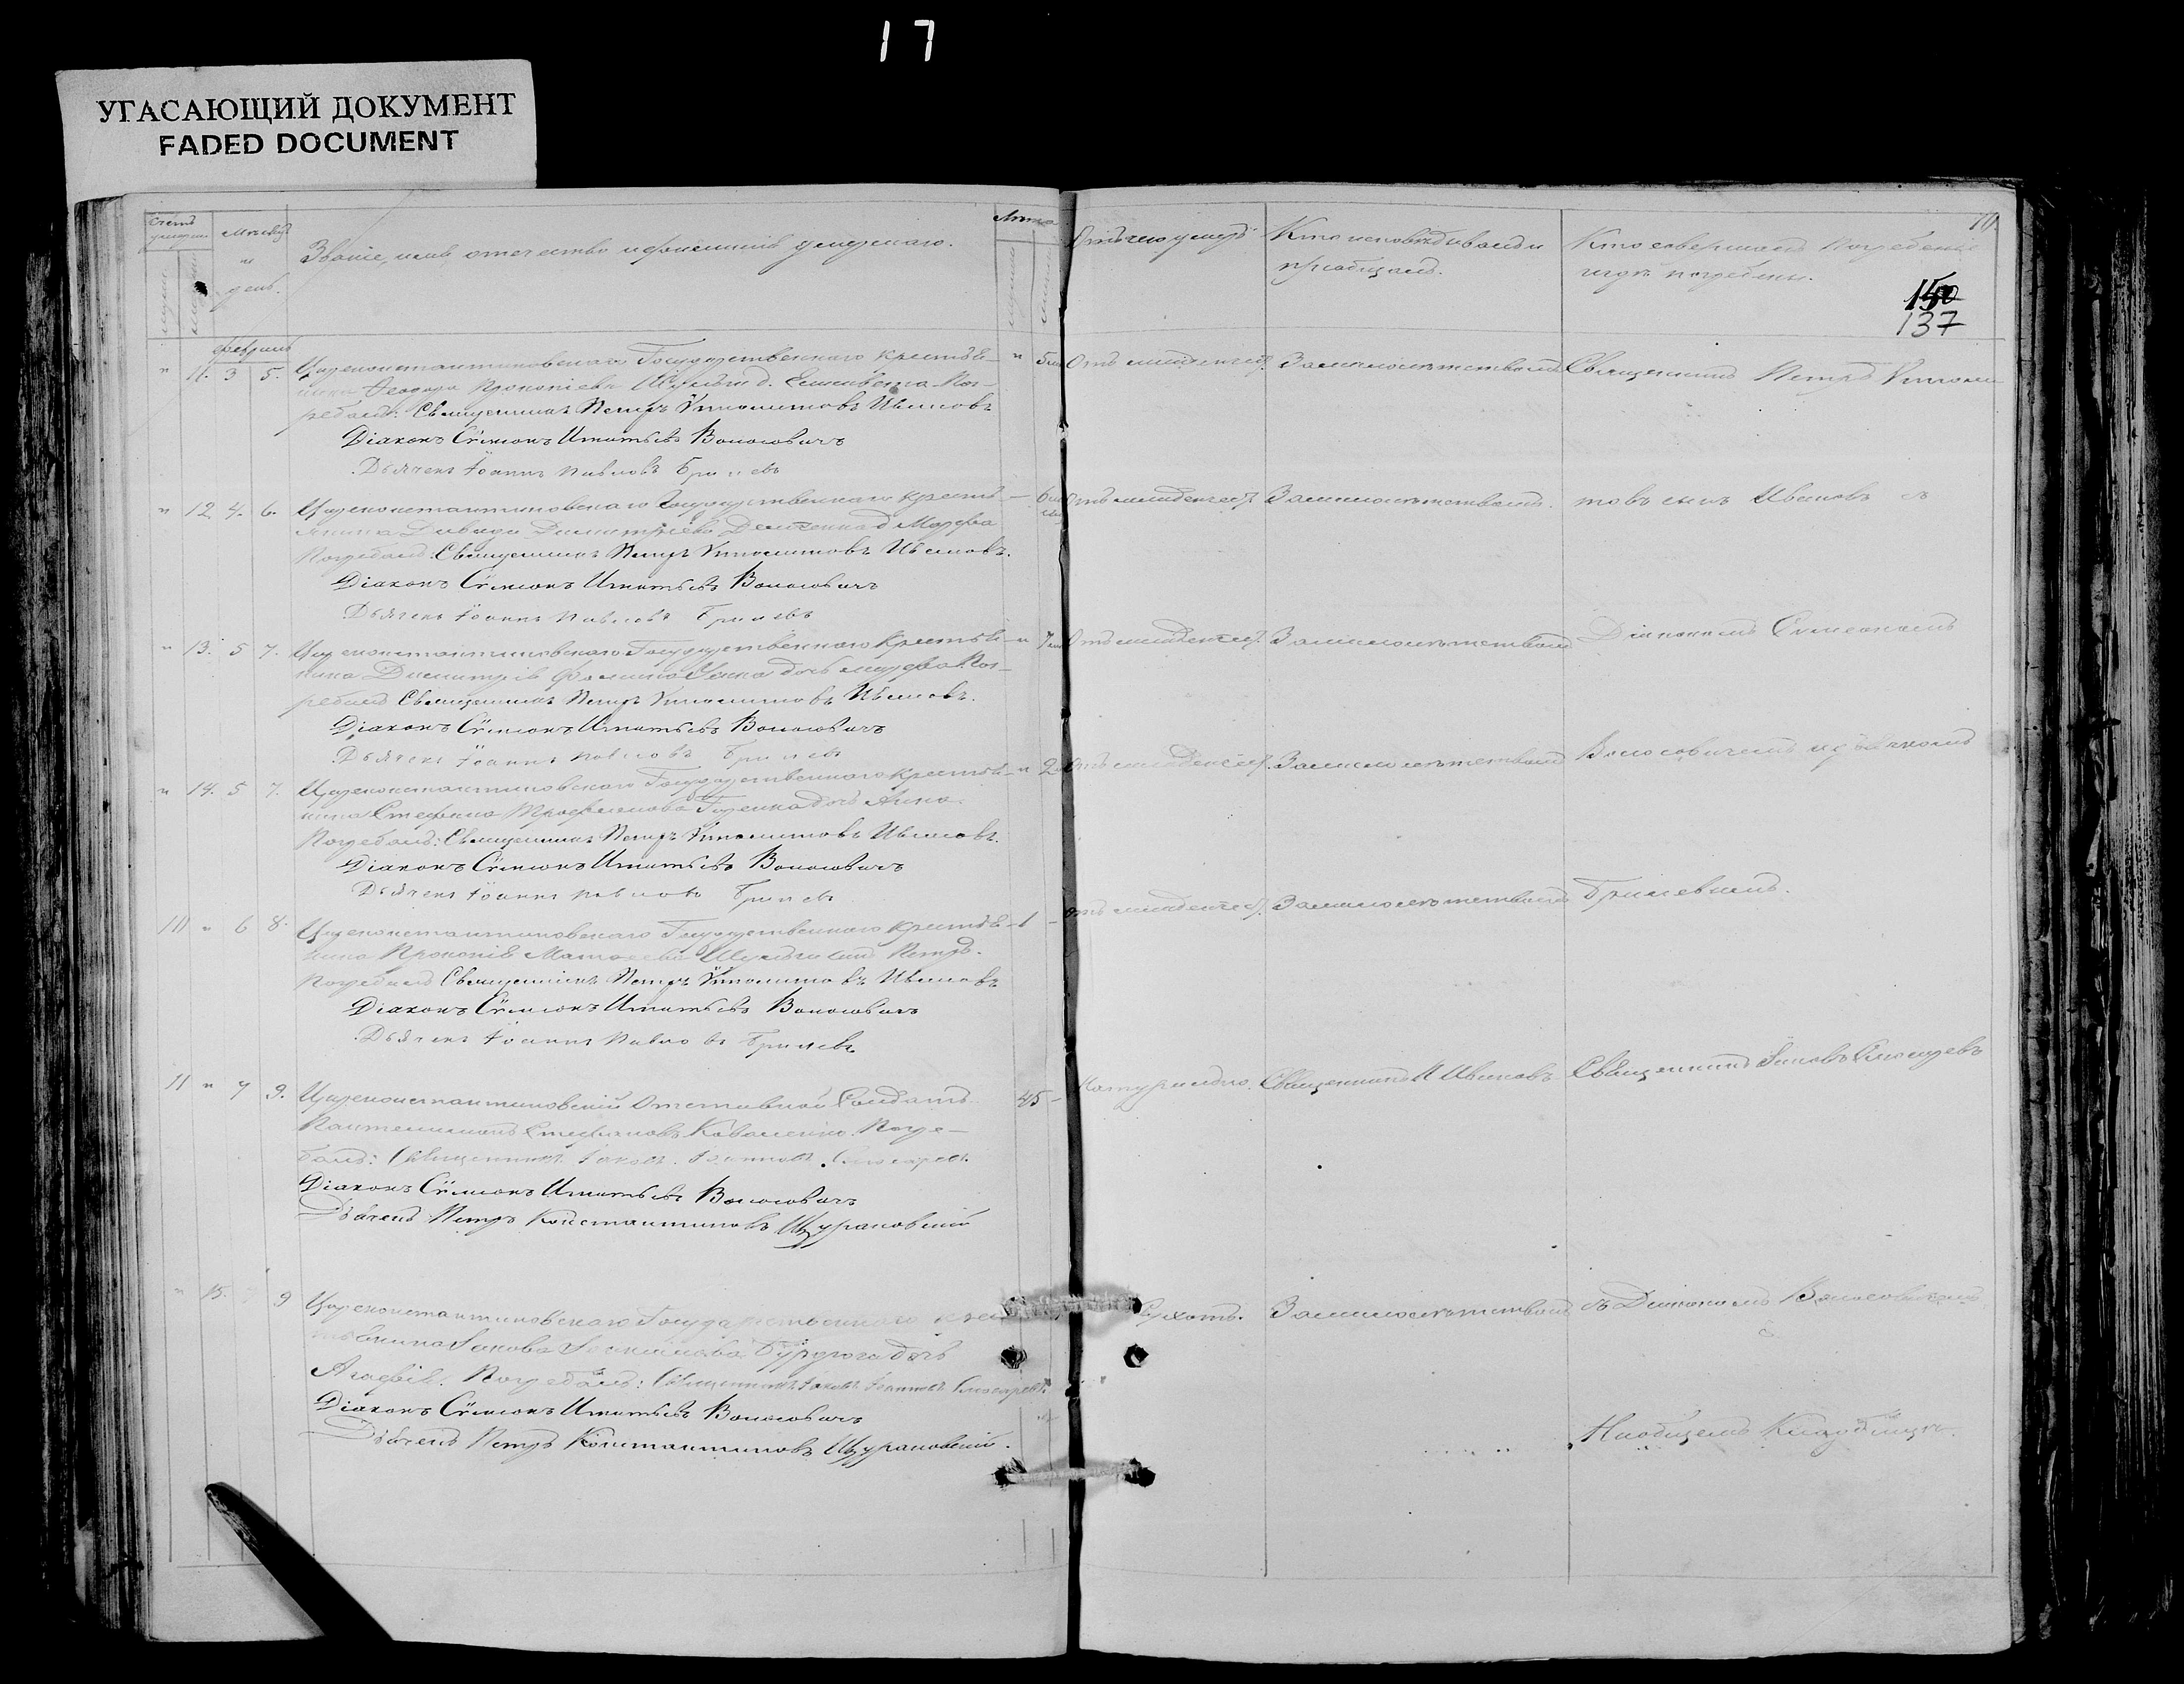 17
УГАСАЮЩИЙ ДОКУМЕНТ
FADED DOCUMENT
Счетъ умерш.
Мѣсяцъ и день.
Званіе, имя, отечество и фамилія умершаго.
Лѣта
Отъ чего умеръ
Кто исповѣдывалъ и пріобщалъ.
Кто совершалъ погребеніе и гдѣ погребены.
150
137
Февраль
" 11. 3 5. Цареконстантиновскаго Государственнаго крестья-
нина Феодора Прокопіева Шульга д. Елисавета. Пог-
ребалъ: Священникъ Петръ Ипполитовъ Ивановъ
Діаконъ Сѵмеонъ Игнатьевъ Волосовичъ
Дьячекъ Іоаннъ Павловъ Гриневъ
" 5 Отъ младенческ. За малолѣтствомъ Священникъ Петръ Ипполи
" 12 4. 6. Цареконстантиновскаго Государственнаго кресть-
янина Давида Димитріева д. Марфа
Погребалъ: Священникъ Петръ Ипполитовъ Ивановъ.
Діаконъ Сѵмеонъ Игнатьевъ Волосовичъ
Дьячекъ Іоаннъ Павловъ Гриневъ
6 Отъ младенческ. За малолѣтствомъ. товъ сынъ Ивановъ съ
" 13. 5 7. Цареконстантиновскаго Государственнаго крестья-
нина Димитрія дочь Марфа. Пог-
ребалъ Священникъ Петръ Ипполитовъ Ивановъ.
Діаконъ Сѵмеонъ Игнатьевъ Волосовичъ
Дьячекъ Іоаннъ Павловъ Гриневъ
" 7 Отъ младенческ. За малолѣтствомъ Діакономъ Симеономъ
" 14. 5 7. Цареконстантиновскаго Государственнаго крестья-
нина Стефана Трофимова дочь Анна.
Погребалъ: Священникъ Петръ Ипполитовъ Ивановъ.
Діаконъ Сѵмеонъ Игнатьевъ Волосовичъ
Дьячекъ Іоаннъ Павловъ Гриневъ
" 2 Отъ младенческ. За малолѣтствомъ Волосовичемъ и дьячкомъ
10 " 6 8. Цареконстантиновскаго Государственнаго крестья-
нина Прокопія Матѳеева Шульги сынъ Петръ.
Погребалъ Священникъ Петръ Ипполитовъ Ивановъ
Діаконъ Сѵмеонъ Игнатьевъ Волосовичъ
Дьячекъ Іоаннъ Павловъ Гриневъ
1 - Отъ младенческ. За малолѣтствомъ Гриневымъ.
11 " 7 9. Цареконстантиновскій Отставной Солдатъ
Пантелимонъ Стефановъ Коваленко. Погре-
балъ: Священникъ Іаковъ Іоанновъ Слюсаревъ.
Діаконъ Сѵмеонъ Игнатьевъ Волосовичъ
Дьячекъ Петръ Константиновъ Щурановскій
45 - Натурально. Священникъ П Ивановъ. Священникъ Іаковъ Слюсаревъ
" 15. 7 9 Цареконстантиновскаго Государственнаго крес
тьянина Іакова дочь
Агафія. Погребалъ: Священникъ Іаковъ Іоанновъ Слюсаревъ.
Діаконъ Сѵмеонъ Игнатьевъ Волосовичъ
Дьячекъ Петръ Константиновъ Щурановскій.
Сухотъ. За малолѣтствомъ съ Діакономъ Волосовичемъ
На общемъ Кладбищѣ.